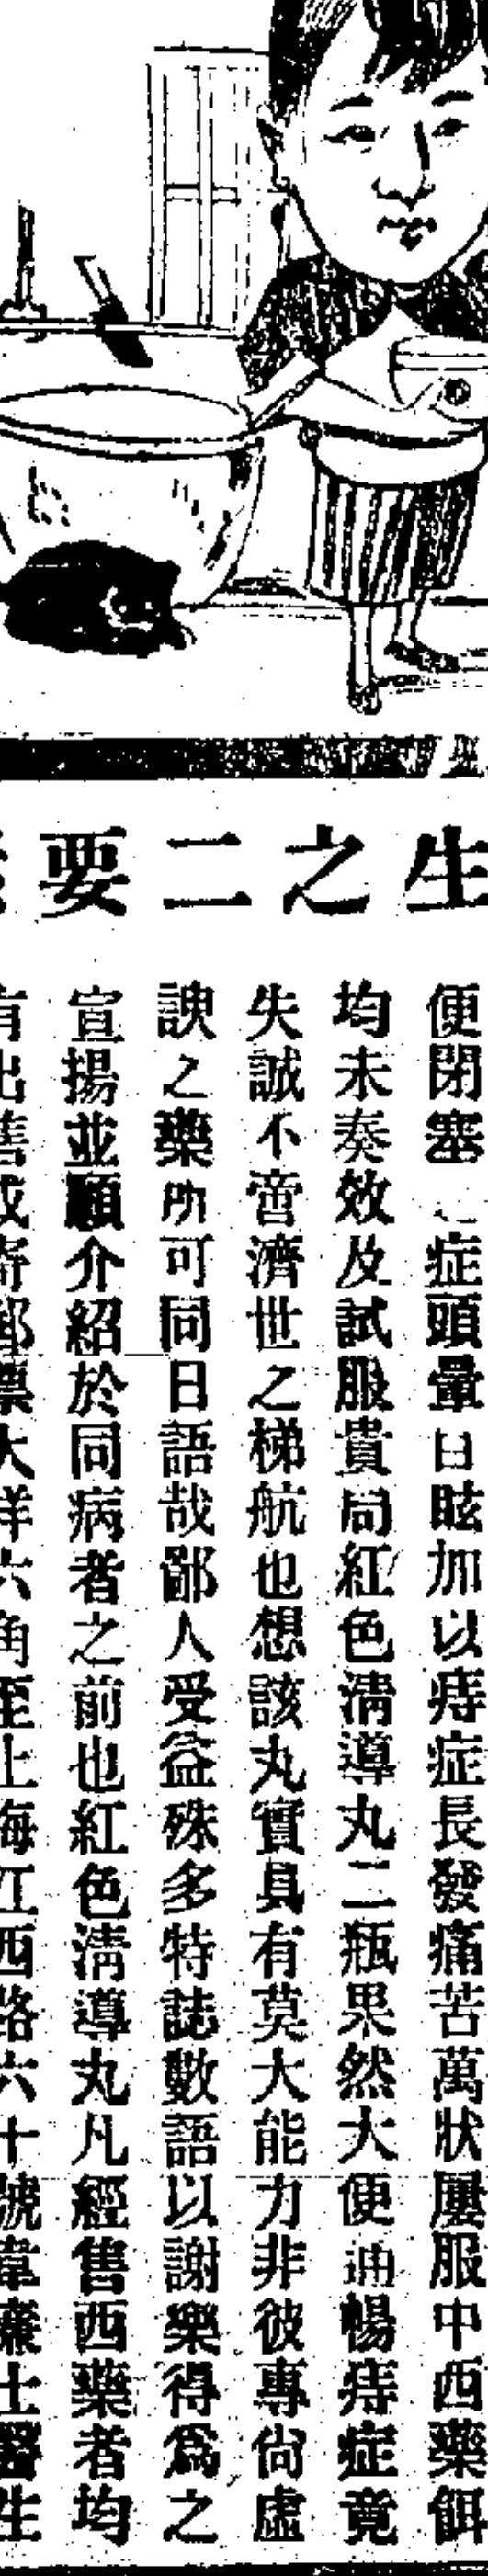 生之二要
便閉塞 症頭暈目眩加以痔症長發痛苦萬狀屢服中西藥餌
均未奏效及試服貴局紅色淸導丸二瓶果然大便通暢痔症竟
失誠不啻濟世之梯航也想該丸實具有莫大能力非彼專尙虛
諛之藥所可同日語哉鄙人受益殊多特誌數語以謝樂得爲之
宣揚並願介紹於同病者之前也紅色淸導丸凡經售西藥者均
有出售或寄郵票大洋六角至上海江西路六十號韋廉士醫生